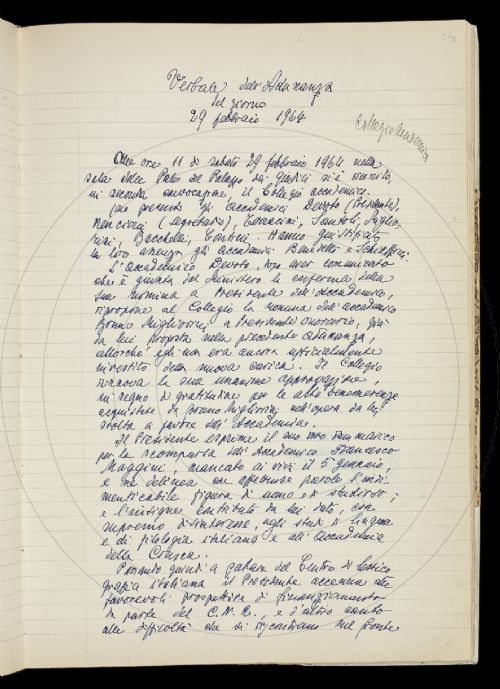 273
Verbale dell'Adunanza
del giorno
29 febbraio 1964
Collegio Accademia
Alle ore 11 di sabato 29 febbraio 1964 nella
sala delle Pale del Palazzo dei Giudici si è riunito,
in seconda convocazione, il Collegio accademico.
Son presenti gli Accademici Devoto (Presidente),
Nencioni (Segretario), Santoli,
Bacchelli, Contini. Hanno giustificato
la loro assenza gli Accademici Benedetto e Schiaffini.
L'Accademico Devoto, dopo aver comunicato
che è giunta dal Ministero la conferma della
sua nomina a Presidente dell'Accademia,
ripropone al Collegio la nomina dell'accademico
Bruno Migliorini a Presidente onorario, già
da lui proposta nella precedente adunanza,
allorché egli non era ancora ufficialmente
investito della nuova carica. Il Collegio
rinnova la sua unanime approvazione,
in segno di gratitudine per le alte benemerenze
acquistate da Bruno Migliorini nell'opera da lui
svolta a favore dell'Accademia.
Il Presidente esprime il suo vivo rammarico
per la scomparsa dell'Accademico Francesco
Maggini, mancato ai vivi il 5 gennaio,
e ne delinea con affettuose parole l'indi-
menticabile figura di uomo e di studioso;
e l'insigne contributo da lui dato, con
supremo disinteresse, agli studi di lingua
e di filologia italiana e all'Accademia
della Crusca.
Passando quindi a parlare del Centro di Lessico-
grafia italiana il Presidente accenna alle
favorevoli prospettive di finanziamento
da parte del C.N.R., e d'altro canto
alle difficoltà che si riscontrano nel fronte